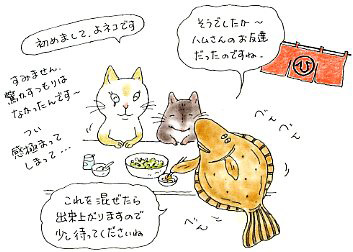 初めまして、よネコです
すみません。
驚かすつもりは
なかったんです〜
つい
感極まって
しまって・・・
そうでしたか〜
ハムさんのお友達
だったのですね。
べんべん
べんべん
べんべん
これを混ぜたら
出来上がりますので
少し待ってくださいね